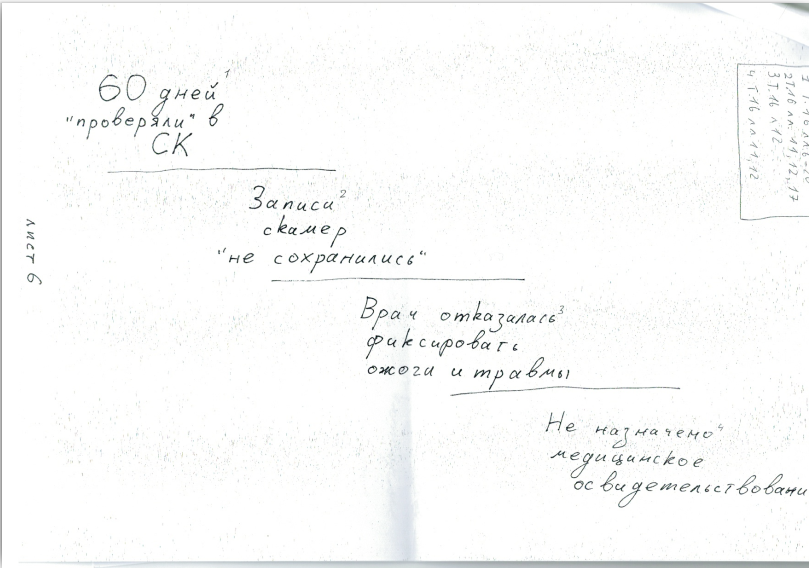 60 дней¹
"проверяли" в
СК
Записи²
с камер
"не сохранились"
Врач отказалась³
фиксировать
ожоги и травмы
Не назначено⁴
медицинское
освидетельствовани
лист 6
2 Т.16 лл 11,12,17
3 Т.16 л 12
4 Т.16 лл 11,12